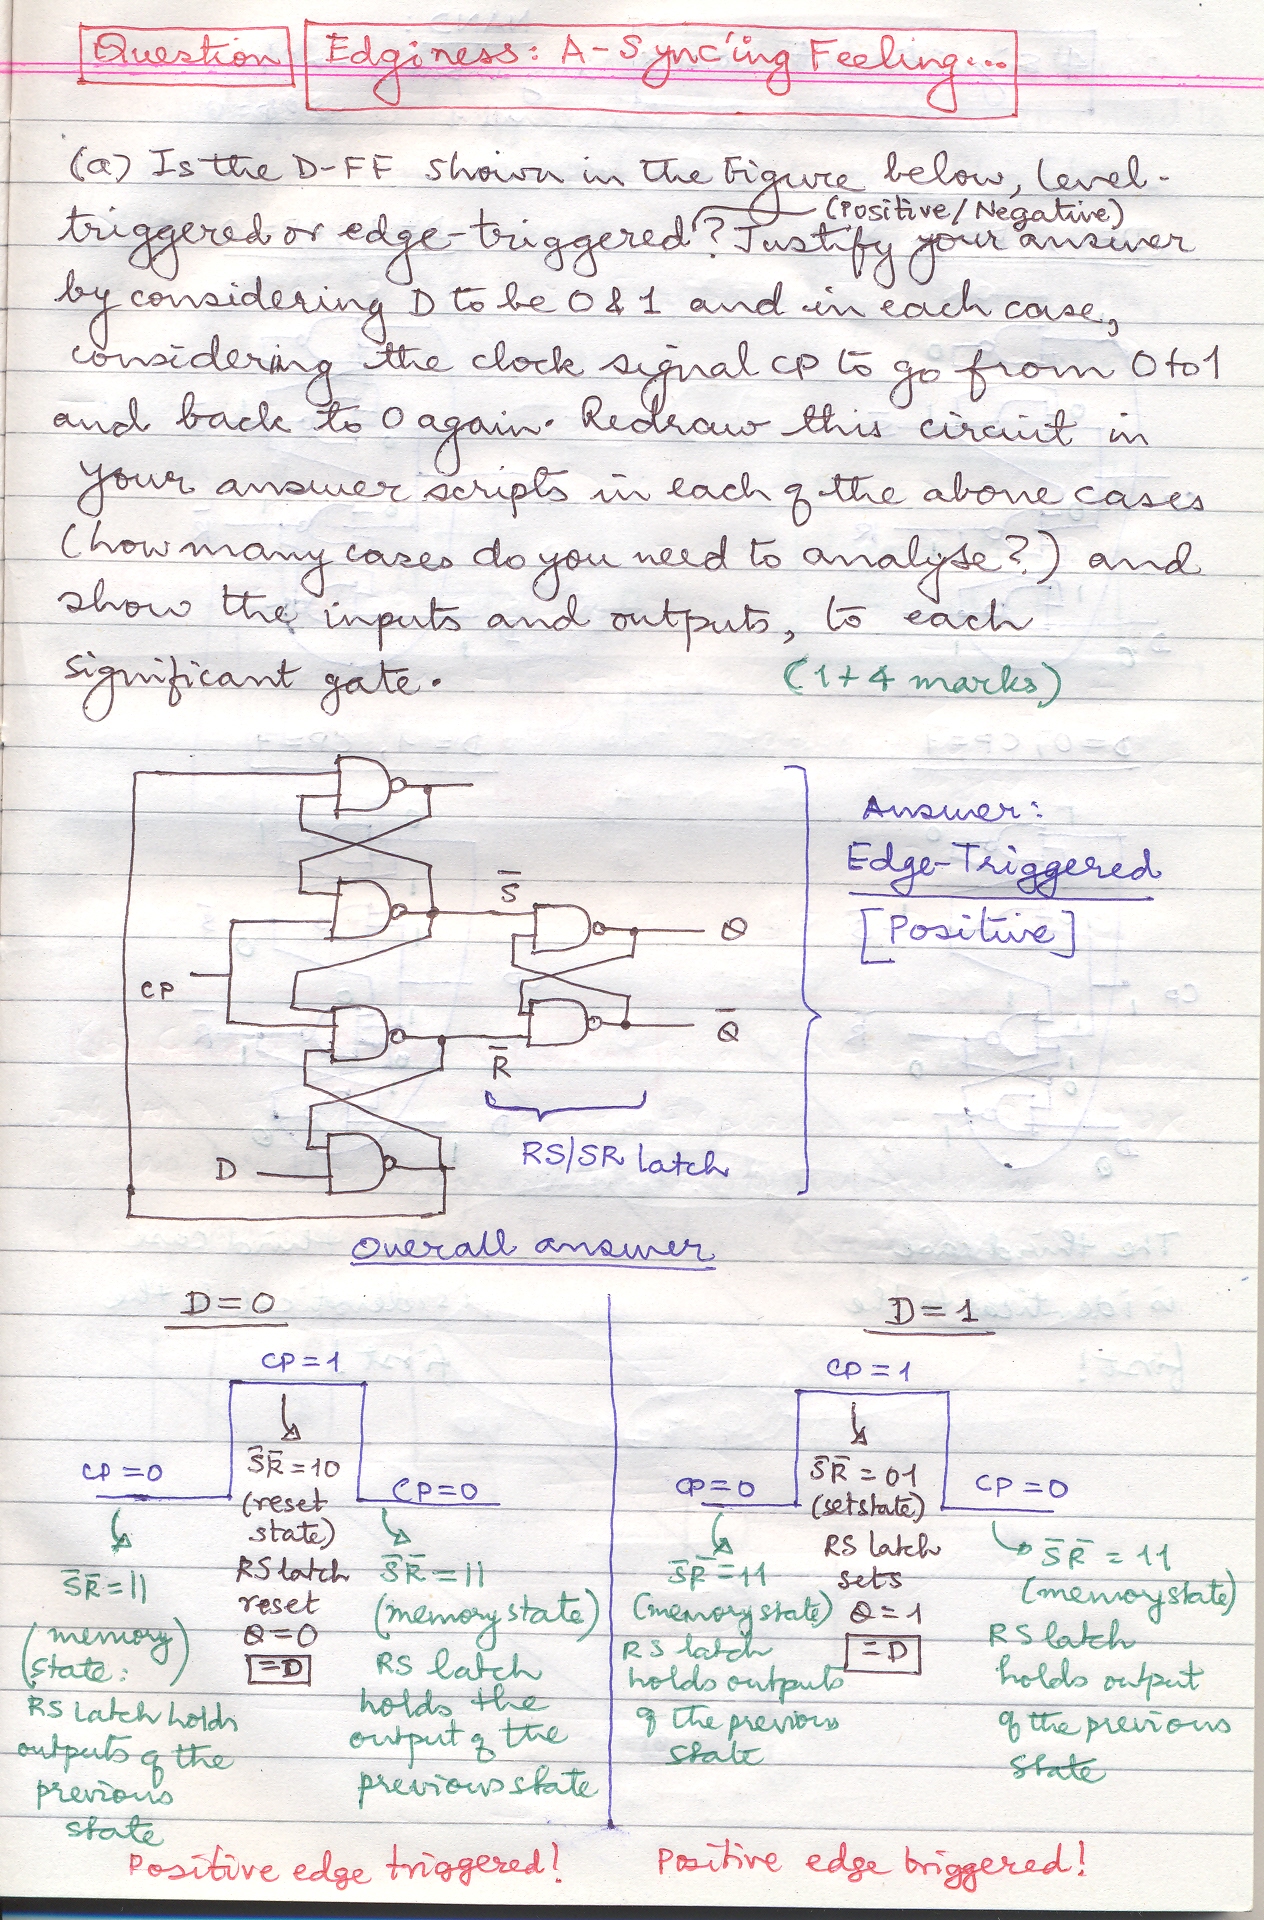 Question
Edginess: A-Sync'ing Feeling...
(a) Is the D-FF shown in the Figure below, level-
(Positive/Negative)
triggered or edge-triggered? Justify your answer
by considering D to be 0 & 1 and in each case,
considering the clock signal CP to go from 0 to 1
and back to 0 again. Redraw this circuit in
your answer scripts in each of the above cases
(how many cases do you need to analyse?) and
show the inputs and outputs, to each
significant gate.
(1+4 marks)
Answer:
Edge-Triggered
[Positive]
S̅
Q
CP
Q̅
R̅
D
RS/SR latch
Overall answer
D=0
CP=1
CP=0
S̅R̅=10
(reset
state)
RS latch
reset
Q=0
=D
CP=0
S̅R̅=11
(memory
state:)
RS latch holds
outputs of the
previous
state
S̅R̅=11
(memory state)
RS latch
holds the
output of the
previous state
Positive edge triggered!
D=1
CP=1
CP=0
S̅R̅=01
(set state)
RS latch
sets
Q=1
=D
CP=0
S̅R̅=11
(memory state)
RS latch
holds outputs
of the previous
state
S̅R̅=11
(memory state)
RS latch
holds output
of the previous
state
Positive edge triggered!